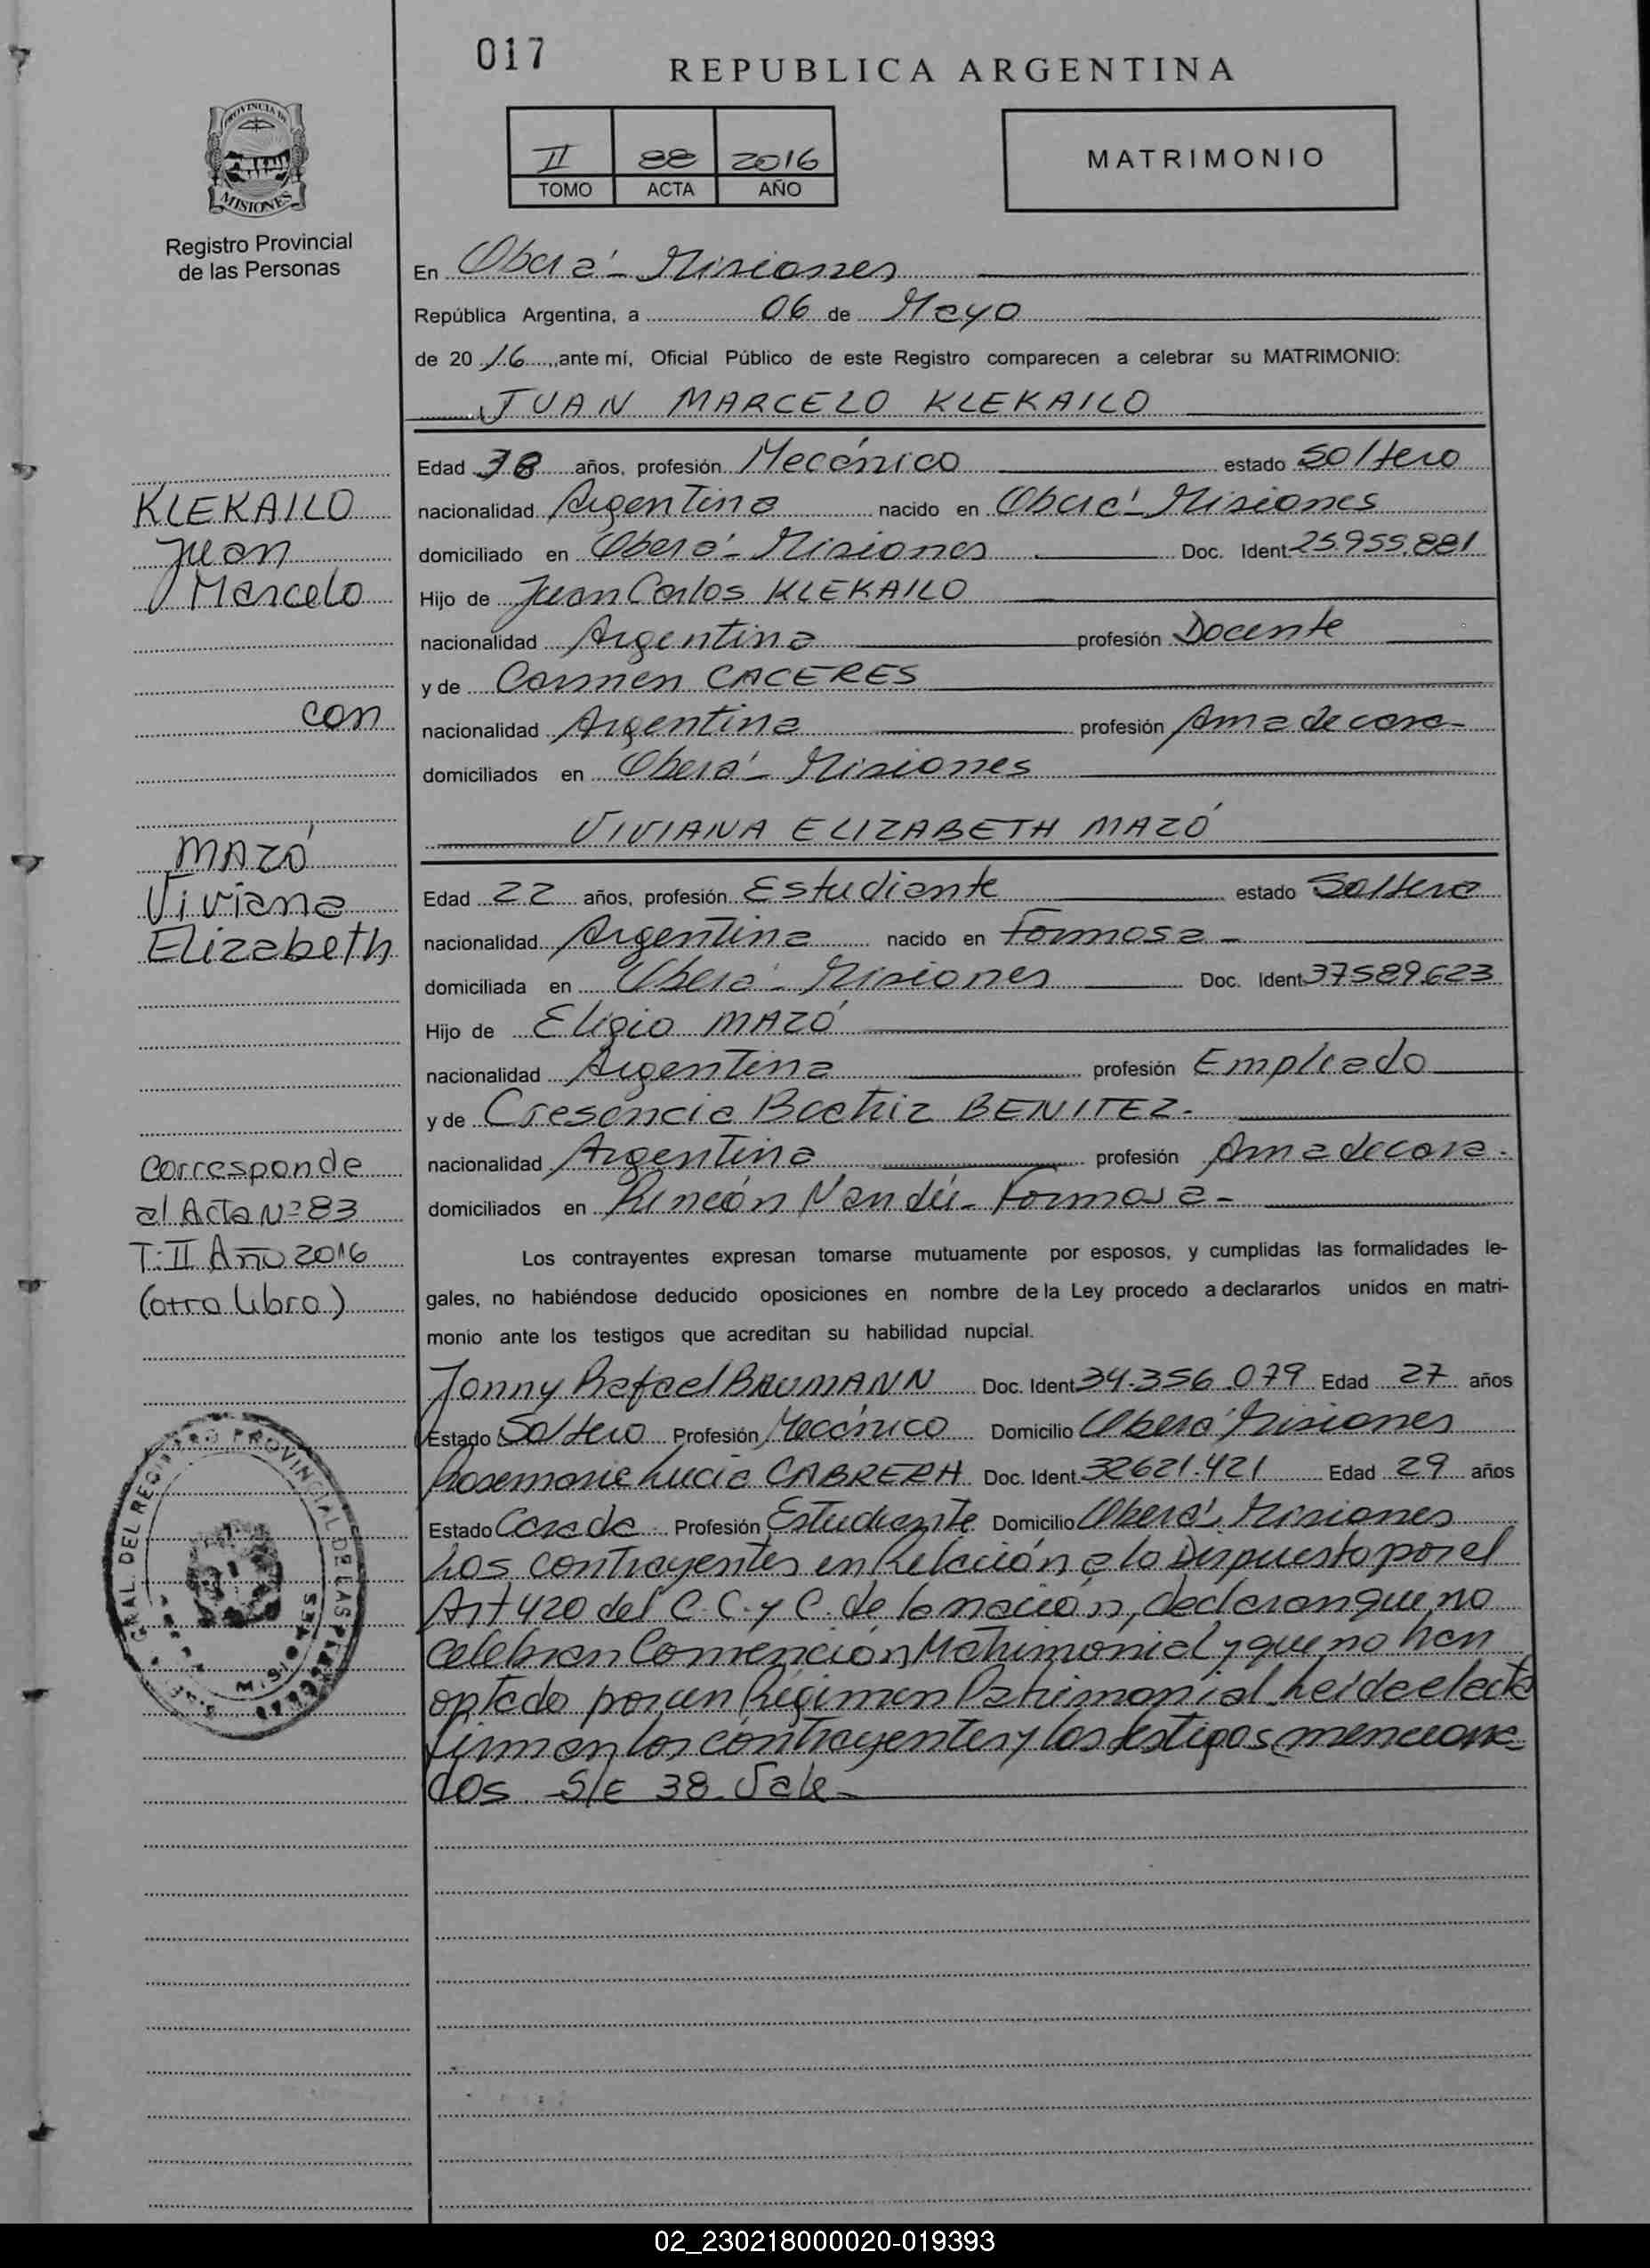 017
REPUBLICA ARGENTINA
II 88 2016
TOMO ACTA AÑO
MATRIMONIO
PROVINCIA DE
MISIONES
Registro Provincial
de las Personas
En Oberá - Misiones
República Argentina, a 06 de Mayo
de 20 16, ante mí, Oficial Público de este Registro comparecen a celebrar su MATRIMONIO:
JUAN MARCELO KLEKAILO
Edad 38 años, profesión Mecánico estado Soltero
nacionalidad Argentina nacido en Oberá - Misiones
domiciliado en Oberá - Misiones Doc. Ident. 25.955.881
Hijo de Juan Carlos KLEKAILO
nacionalidad Argentina profesión Docente
y de Carmen CACERES
nacionalidad Argentina profesión Ama de casa-
domiciliados en Oberá - Misiones
VIVIANA ELIZABETH MAZÓ
Edad 22 años, profesión Estudiante estado Soltera
nacionalidad Argentina nacido en Formosa -
domiciliada en Oberá - Misiones Doc. Ident. 37.589.623
Hijo de Eligio MAZÓ
nacionalidad Argentina profesión Empleado
y de Cresencia Beatriz BENITEZ.-
nacionalidad Argentina profesión Ama de casa.-
domiciliados en Rincón Ñandú - Formosa -
KLEKAILO
Juan
Marcelo
con
MAZÓ
Viviana
Elizabeth
Corresponde
al Acta Nº 83
T: II Año 2016
(otro libro)
Los contrayentes expresan tomarse mutuamente por esposos, y cumplidas las formalidades le-
gales, no habiéndose deducido oposiciones en nombre de la Ley procedo a declararlos unidos en matri-
monio ante los testigos que acreditan su habilidad nupcial.
Jonny Rafael BAUMANN Doc. Ident. 34.356.079 Edad 27 años
Estado Soltero Profesión Mecánico Domicilio Oberá Misiones
Rosemarie Lucia CABRERA Doc. Ident. 32621.421 Edad 29 años
Estado Casada. Profesión Estudiante Domicilio Oberá - Misiones
Los contrayentes en Relación a lo Dispuesto por el
Art 420 del C.C. y C. de la nación, declaran que no
celebran Convención Matrimonial y que no han
optado por un Régimen Patrimonial. Leída el acta
firman los contrayentes y los testigos menciona-
dos. S/E 38. Vale-
GRAL. DEL REGISTRO PROVINCIAL DE LAS PERSONAS
02_230218000020-019393